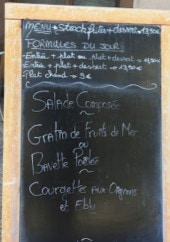 MENU : Steack frites + dessert
FORMULES DU JOUR
- Entrée + plat ou plat + dessert → 11,50€
- Entrée + plat + dessert → 13,50€
- Plat chaud → 9€
Salade Composée
~
Gratin de Fruits de Mer
ou
Bavette Poêlée
~
Courgettes aux Oignons
et Ebly